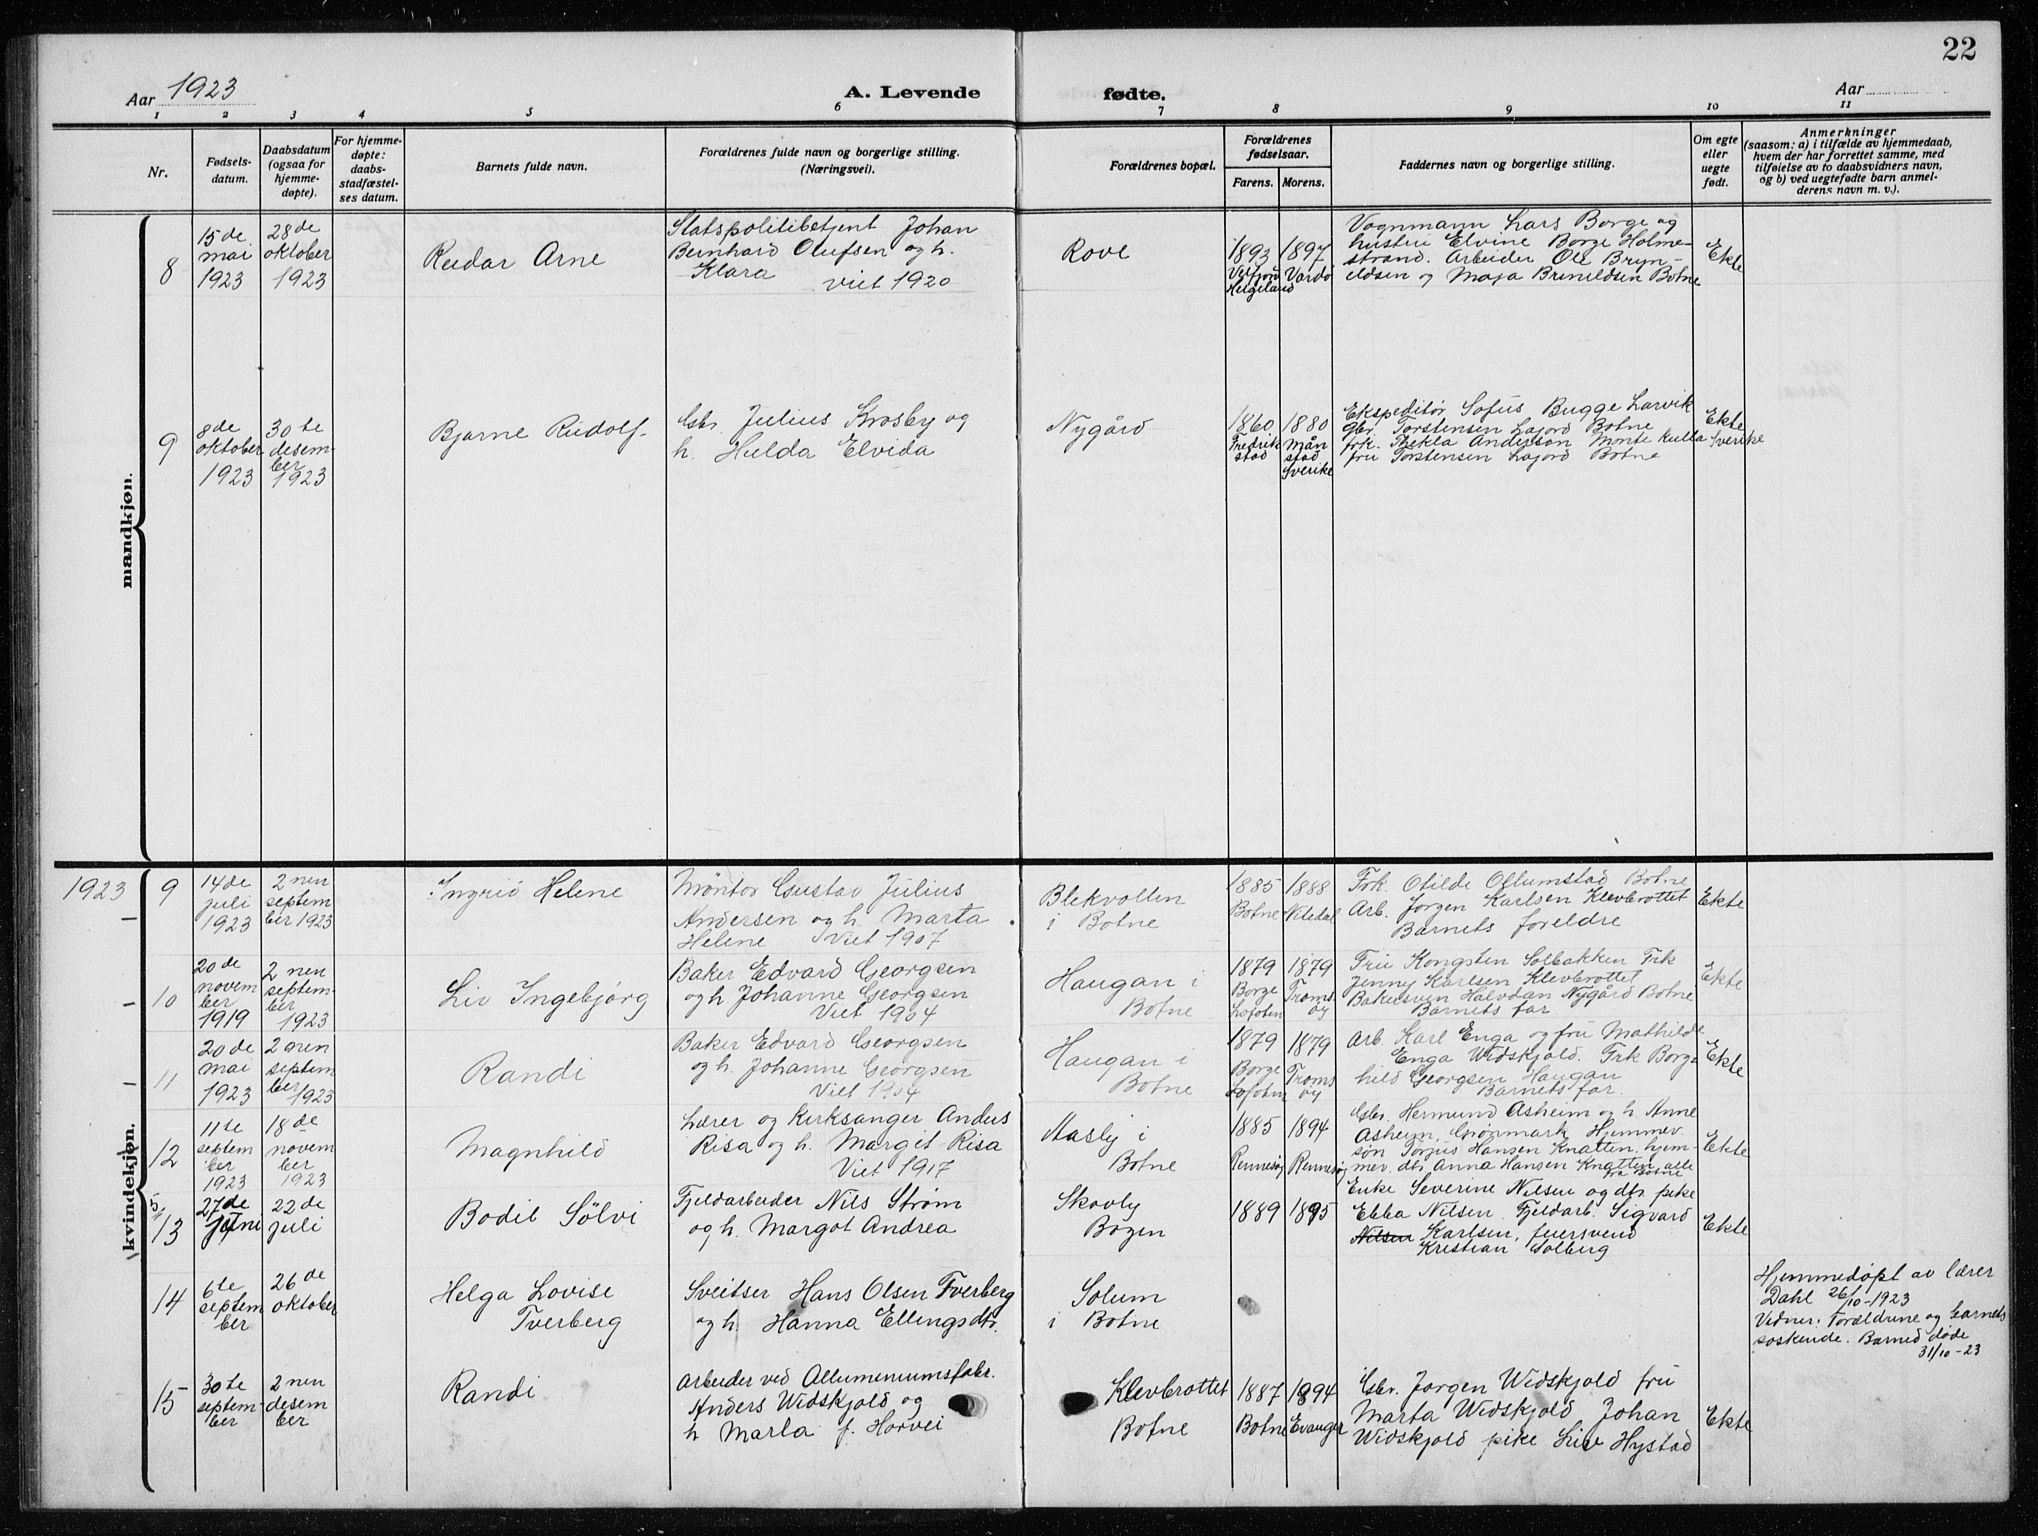 22
Aar 1923
A. Levende fødte.
Aar
1 2 3 4 5 6 7 8 9 10 11
Nr.
Fødsels-
datum.
Daabsdatum
(ogsaa for
hjemme-
døpte).
For hjemme-
døpte:
daabs-
stadfæstel-
ses datum.
Barnets fulde navn.
Forældrenes fulde navn og borgerlige stilling.
(Næringsvei).
Forældrenes bopæl.
Forældrenes
fødselsaar.
Farens. Morens.
Faddernes navn og borgerlige stilling.
Om egte
eller
uegte
født.
Anmerkninger
(saasom: a) i tilfælde av hjemmedaab,
hvem der har forrettet samme, med
tilføielse av to daabsvidners navn,
og b) ved uegtefødte barn anmel-
derens navn m. v.).
mandkjøn.
8
15 de
mai
1923
28 de
oktober
1923
Reidar Arne
Statspolitibetjent Johan
Bernhard Olufsen og h.
Klara
viet 1920
Rove
1893
Velfjord
Helgeland
1897
Vardø
Vognmann Lars Borge og
hustru Elvine Borge Holme-
strand. Arbeider Ole Bryn-
eldsen og Maja Bruneldsen Botne
Ekte
9
8 de
oktober
1923
30 te
desem-
ber
1923
Bjarne Rudolf
Gbr. Julius Krosby og
h. Hulda Elvida
Nygård
1860
Fredrik
stad
1880
Mån
stad
Sverike
Ekspeditør Sofus Bugge Larvik
Gbr. Torstensen Lajord Botne
frk. Thekla Anderson Monte Kulla Sverike
fru Torstensen Lajord Botne
Ekte
kvindekjøn.
1923
9
14 de
juli
1923
2 nen
septem
ber 1923
Ingrid Helene
Møntør Gustav Julius
Andersen og h. Marta
Helene Viet 1907
Blekvolten
i Botne
1885
Botne
1888
Nitedal
Frk. Otilde Ollumstad Botne
Arb. Jørgen Karlsen Klevbrottet
Barnets foreldre
Ekte
10
20 de
novem
ber
1919
2 nen
septem-
ber
1923
Liv Ingebjørg
Baker Edvard Georgsen
og h Johanne Georgsen
Viet 1904
Haugan i
Botne
1879
Borge
Lofoten
1879
Troms
øy
Fru Kongsten Solbakken Frk
Jenny Karlsen Klevbrottet
Bakersven Halvdan Nygård Botne
Barnets far
Ekte
11
20 de
mai
1923
2 nen
septem
ber
1923
Randi
Baker Edvard Georgsen
og h. Johanne Georgsen
Viet 1904
Haugan i
Botne
1879
Borge
Lofoten
1879
Troms
øy
Arb. Karl Enga og fru Mathilde
Enga Widskjold. Frk Borg
hild Georgsen Haugan
Barnets far.
Ekte
12
11 te
septem
ber
1923
18 de
novem
ber
1923
Magnhild
Lærer og kirksanger Anders
Risa og h. Marget Risa
Viet 1917
Aasly i
Botne
1885
Rennesøy
1894
Rennesøy
Gbr. Hermund Asheim og h Anne
Asheim, Grønmark, Hjemmev.
søn Torjus Hansen Knatten, hjem-
mev. dtr Anna Hansen Knatten, alle
fra Botne
Ekte
13
27 de
juni
22 de
juli
Bodil Sølvi
Fjeldarbeider Nils Strøm
og h. Margot Andrea
Skovly
Bogen
1889
1895
Enke Severine Nilsen og dtr pike
Ebba Nilsen. Fjeldarb. Sigvard
Nilsen Karlsen, feiersvend
Kristian Solberg
Ekte
14
6 te
septem
ber
26 de
oktober
Helga Lovise
Tverberg
Sveitser Hans Olsen Tverberg
og h. Hanna Ellingsdtr.
Solum
i Botne
Hjemmedøpt av lærer
Dahl 26/10-1923
Vidner: Forældrene og barnets
søskende. Barnet døde
31/10-23
15
30 te
septem-
ber
2 nen
desem
ber
Randi
Arbeider ved Allumeniumsfabr.
Anders Widskjold og
h Marta f. Horvei
Klevbrottet
Botne
1887
Botne
1894
Evanger
Gbr. Jørgen Widskjold fru
Marta Widskjold Johan
Widskjold pike Liv Hystad
Ekte